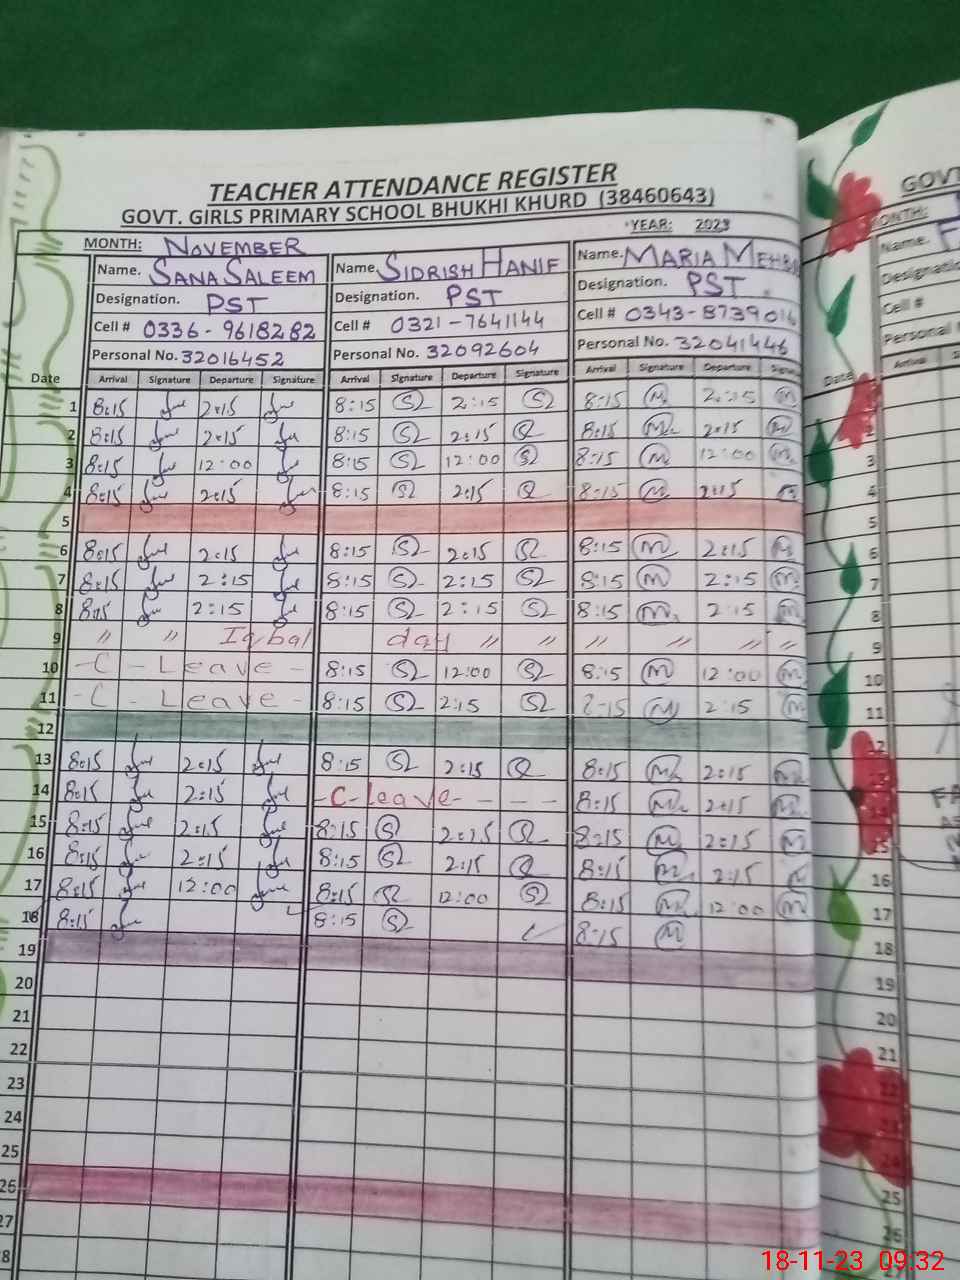 TEACHER ATTENDANCE REGISTER
GOVT. GIRLS PRIMARY SCHOOL BHUKHI KHURD (38460643)
YEAR: 2023
MONTH: NOVEMBER
Name. SANA SALEEM Name. SIDRISH HANIF Name. MARIA
Designation. PST Designation. PST Designation. PST
Cell # 0336-9618282 Cell # 0321-7641144 Cell # 0343-8739016
Personal No. 32016452 Personal No. 32092604 Personal No. 32041446
Date Arrival Signature Departure Signature Arrival Signature Departure Signature Arrival Signature Departure
1 8:15 2:15 8:15 2:15 8:15 2:15
2 8:15 2:15 8:15 2:15 8:15 2:15
3 8:15 12:00 8:15 12:00 8:15 12:00
4 8:15 2:15 8:15 2:15 8:15 2:15
5
6 8:15 2:15 8:15 2:15 8:15 2:15
7 8:15 2:15 8:15 2:15 8:15 2:15
8 8:15 2:15 8:15 2:15 8:15 2:15
9 " " Iqbal day " " " " " "
10 -C-Leave- 8:15 12:00 8:15 12:00
11 -C-Leave- 8:15 2:15 8:15 2:15
12
13 8:15 2:15 8:15 2:15 8:15 2:15
14 8:15 2:15 -C-leave---- 8:15 2:15
15 8:15 2:15 8:15 2:15 8:15 2:15
16 8:15 2:15 8:15 2:15 8:15 2:15
17 8:15 12:00 8:15 12:00 8:15 12:00
18 8:15 8:15 8:15
19
20
21
22
23
24
25
26
27
28
MONTH:
Name.
Cell #
Date
3
4
5
6
7
8
9
10
11
12
16
17
18
19
20
21
25
26
18-11-23 09:32